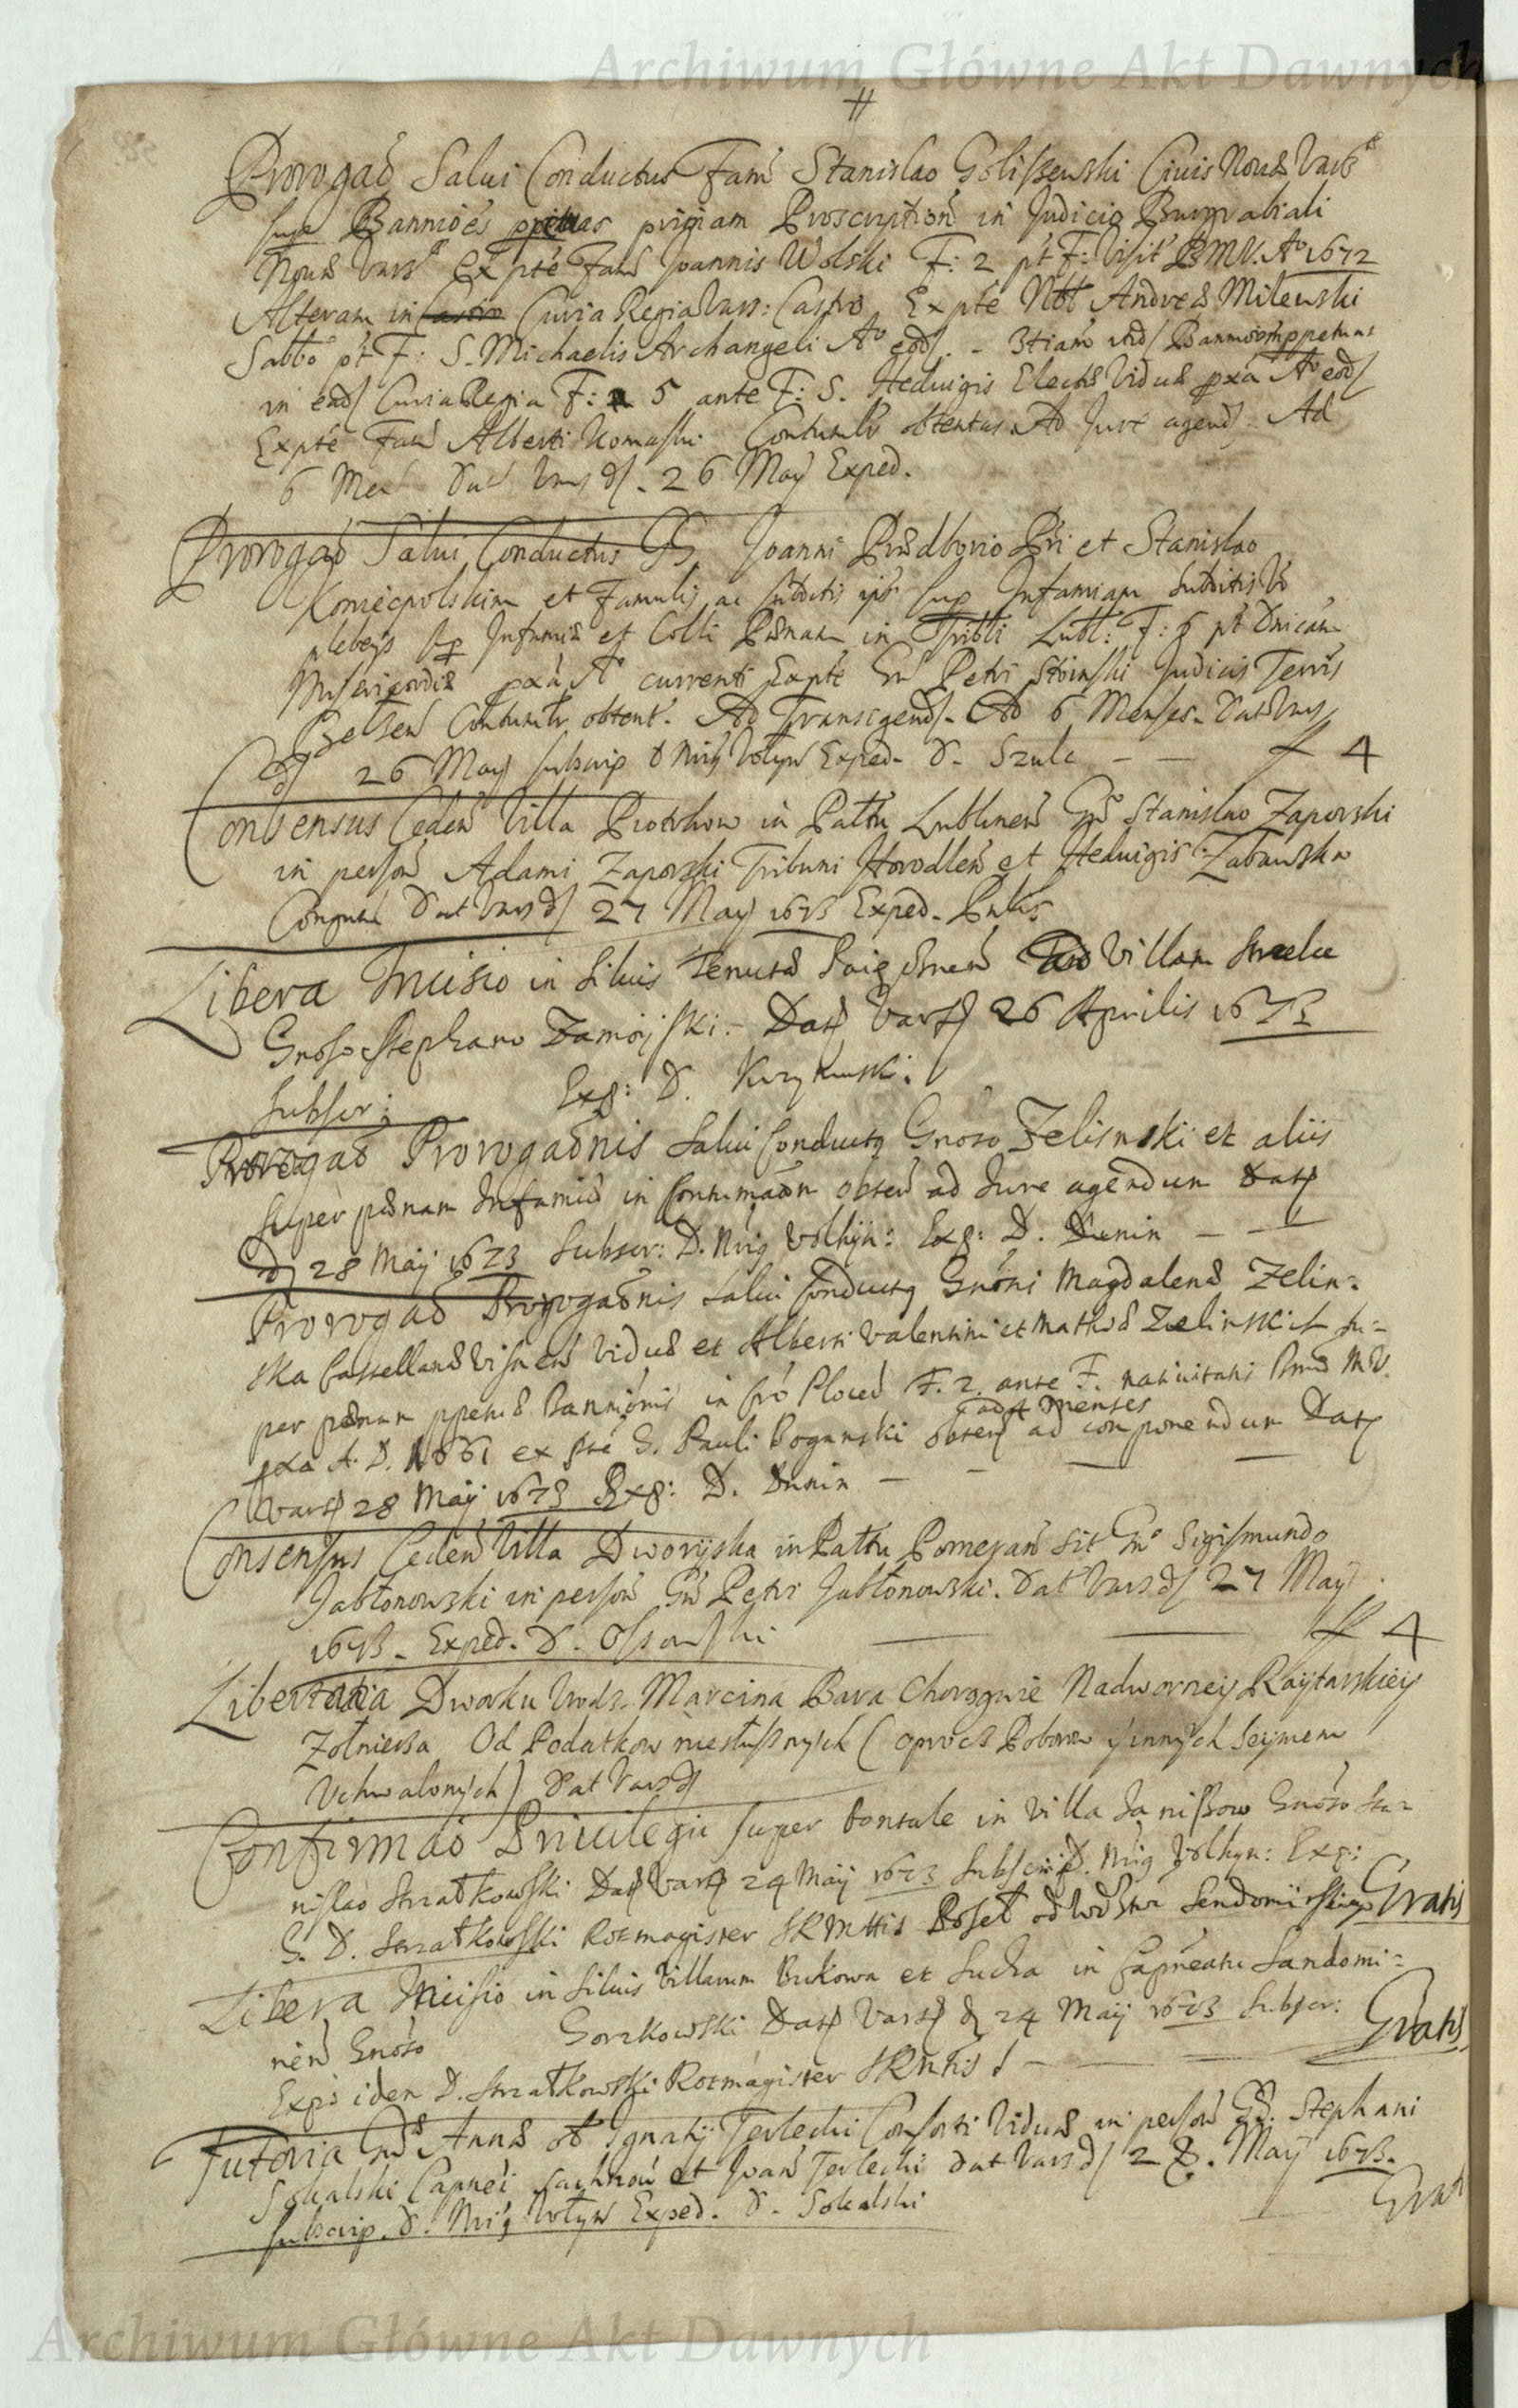 Archiwum Główne Akt Dawnych
Prorogaõ Salui Conductus Fam Stanislao Goliszewski Ciuis Nouæ Vars
supe Banniões ppetuas primam Proscription in Judicio Burgrabiali
Nouæ Vars Ex pte Fam Joannis Wolski F: 2 pt F: Visit BMV. Aº 1672
Alteram in Castro Curia Regia Vars: Castro Ex pte Nbl Andreæ Milewski
Sabbo pt F: S. Michaelis Archangeli Aº eod. - 3tiam itid Banniois ppetuas
in ead Curia Regia F: 5 ante F: S. Heduigis Electæ Viduæ pxa Aº eod
Ex pte Fam Alberti Contum obtentas Ad Jure agend. Ad
6 Men Dat Vars d. 26 May Exped.
Prorogaõ Salui Conductus GG Joanni Prædborio Pri et Stanislao
Koniecpolskim et Famulis ac subditis ips sup Infamiam subditis Vo
plebeys sup Infamiæ et Colli Pænam in Tribli Lubl: F: 6 pt Dnicam
Misericordiæ pxa Aº currenti Ex pte Gn Petri Judicis Terris
Belsen Contum obtent. Ad Transigend. Ad 6 Menses. Dat Vars
d 26 May subscrip D Nrig Wolyn Exped. D. Szulc - - ff 4
Consensus Ceden Villa Piotrkow in Pattu Lublinen Gnº Stanislao Zaporski
in person Adami Zaporski Tribuni Horodlen et Heduigis Zabawska
Coniugum Dat Vars d 27 May 1673 Exped.
Libera Incisio in siluis Tenutæ ad Villam
Gnoso Stephano Zamoÿski. - Dat Vars 26 Aprilis 1673
subscr: Exp: D. Krzykowski.
Prorogaõ Prorogaõnis salui conductq Gnoso Zelinski et aliis
super pænam Infamiæ in contumaõm obten ad Jure agendum Dat
d 28 Maij 1673 subscr: D. Nrig Volhÿn: Exp: D. Dunin - -
Prorogaõ Prorogaõnis salui conductq Gnõni Magdalenæ Zelin:
ska Castellanæ Visnen viduæ et Alberti Valentini et Mathiæ Zelinski su:
per pænam ppetuæ Bannionis in Cro Plocen F. 2. ante F. natiuitatis Bmæ M V.
pxa A. D. 1661 ex pte G. Pauli Boganski obten ad componendum Dat
ad 4 Menses
Vars 28 Maij 1673 Exp: D. Dunin - -
Consensus Ceden Villa Dworyska in Pattu Pomeran sit Gnº Sigismundo
Jabłonowski in person Gn Petri Jabłonowski. Dat Vars d 27 May
1673. Exped. D. Ossowski ff 4
Libertatia Dworku Vrodz. Marcina Bara Chorągwie Nadworney Raytarskiey
Zołniersa Od Podatkow niesłusznych (oprocz Poborow ÿ innych Seymem
Vchwalonych) Dat Vars d
Confirmaõ Priuilegii super bonsale in villa Janiszow Gnoso Sta:
nislao Strzałkowski Dat Vars 24 Maij 1673 subscrip D. Nrig Volhyn: Exp:
G. D. Strzałkowski Rotmagister SRMttis Poseł od wodztwa Sendomirskiego Gratis
Libera Incisio in siluis villarum Bukowa et Sucha in Capneatu Sandomi:
rien Gnoso Gorzkowski Dat Vars d 24 Maij 1673 subscr:
Exp: idem D. Strzałkowski Rotmagister SRMtis - - Gratis
Tutoria Gnæ Annæ ol Ignatij Terlecki Consorti Viduæ in person GG. Stephani
Sokalski Capnei et Joan Terlecki dat Vars d 28. May 1673.
subscrip. D. Nrig Wolyn Exped. D. Sokalski Grat
Archiwum Główne Akt Dawnych